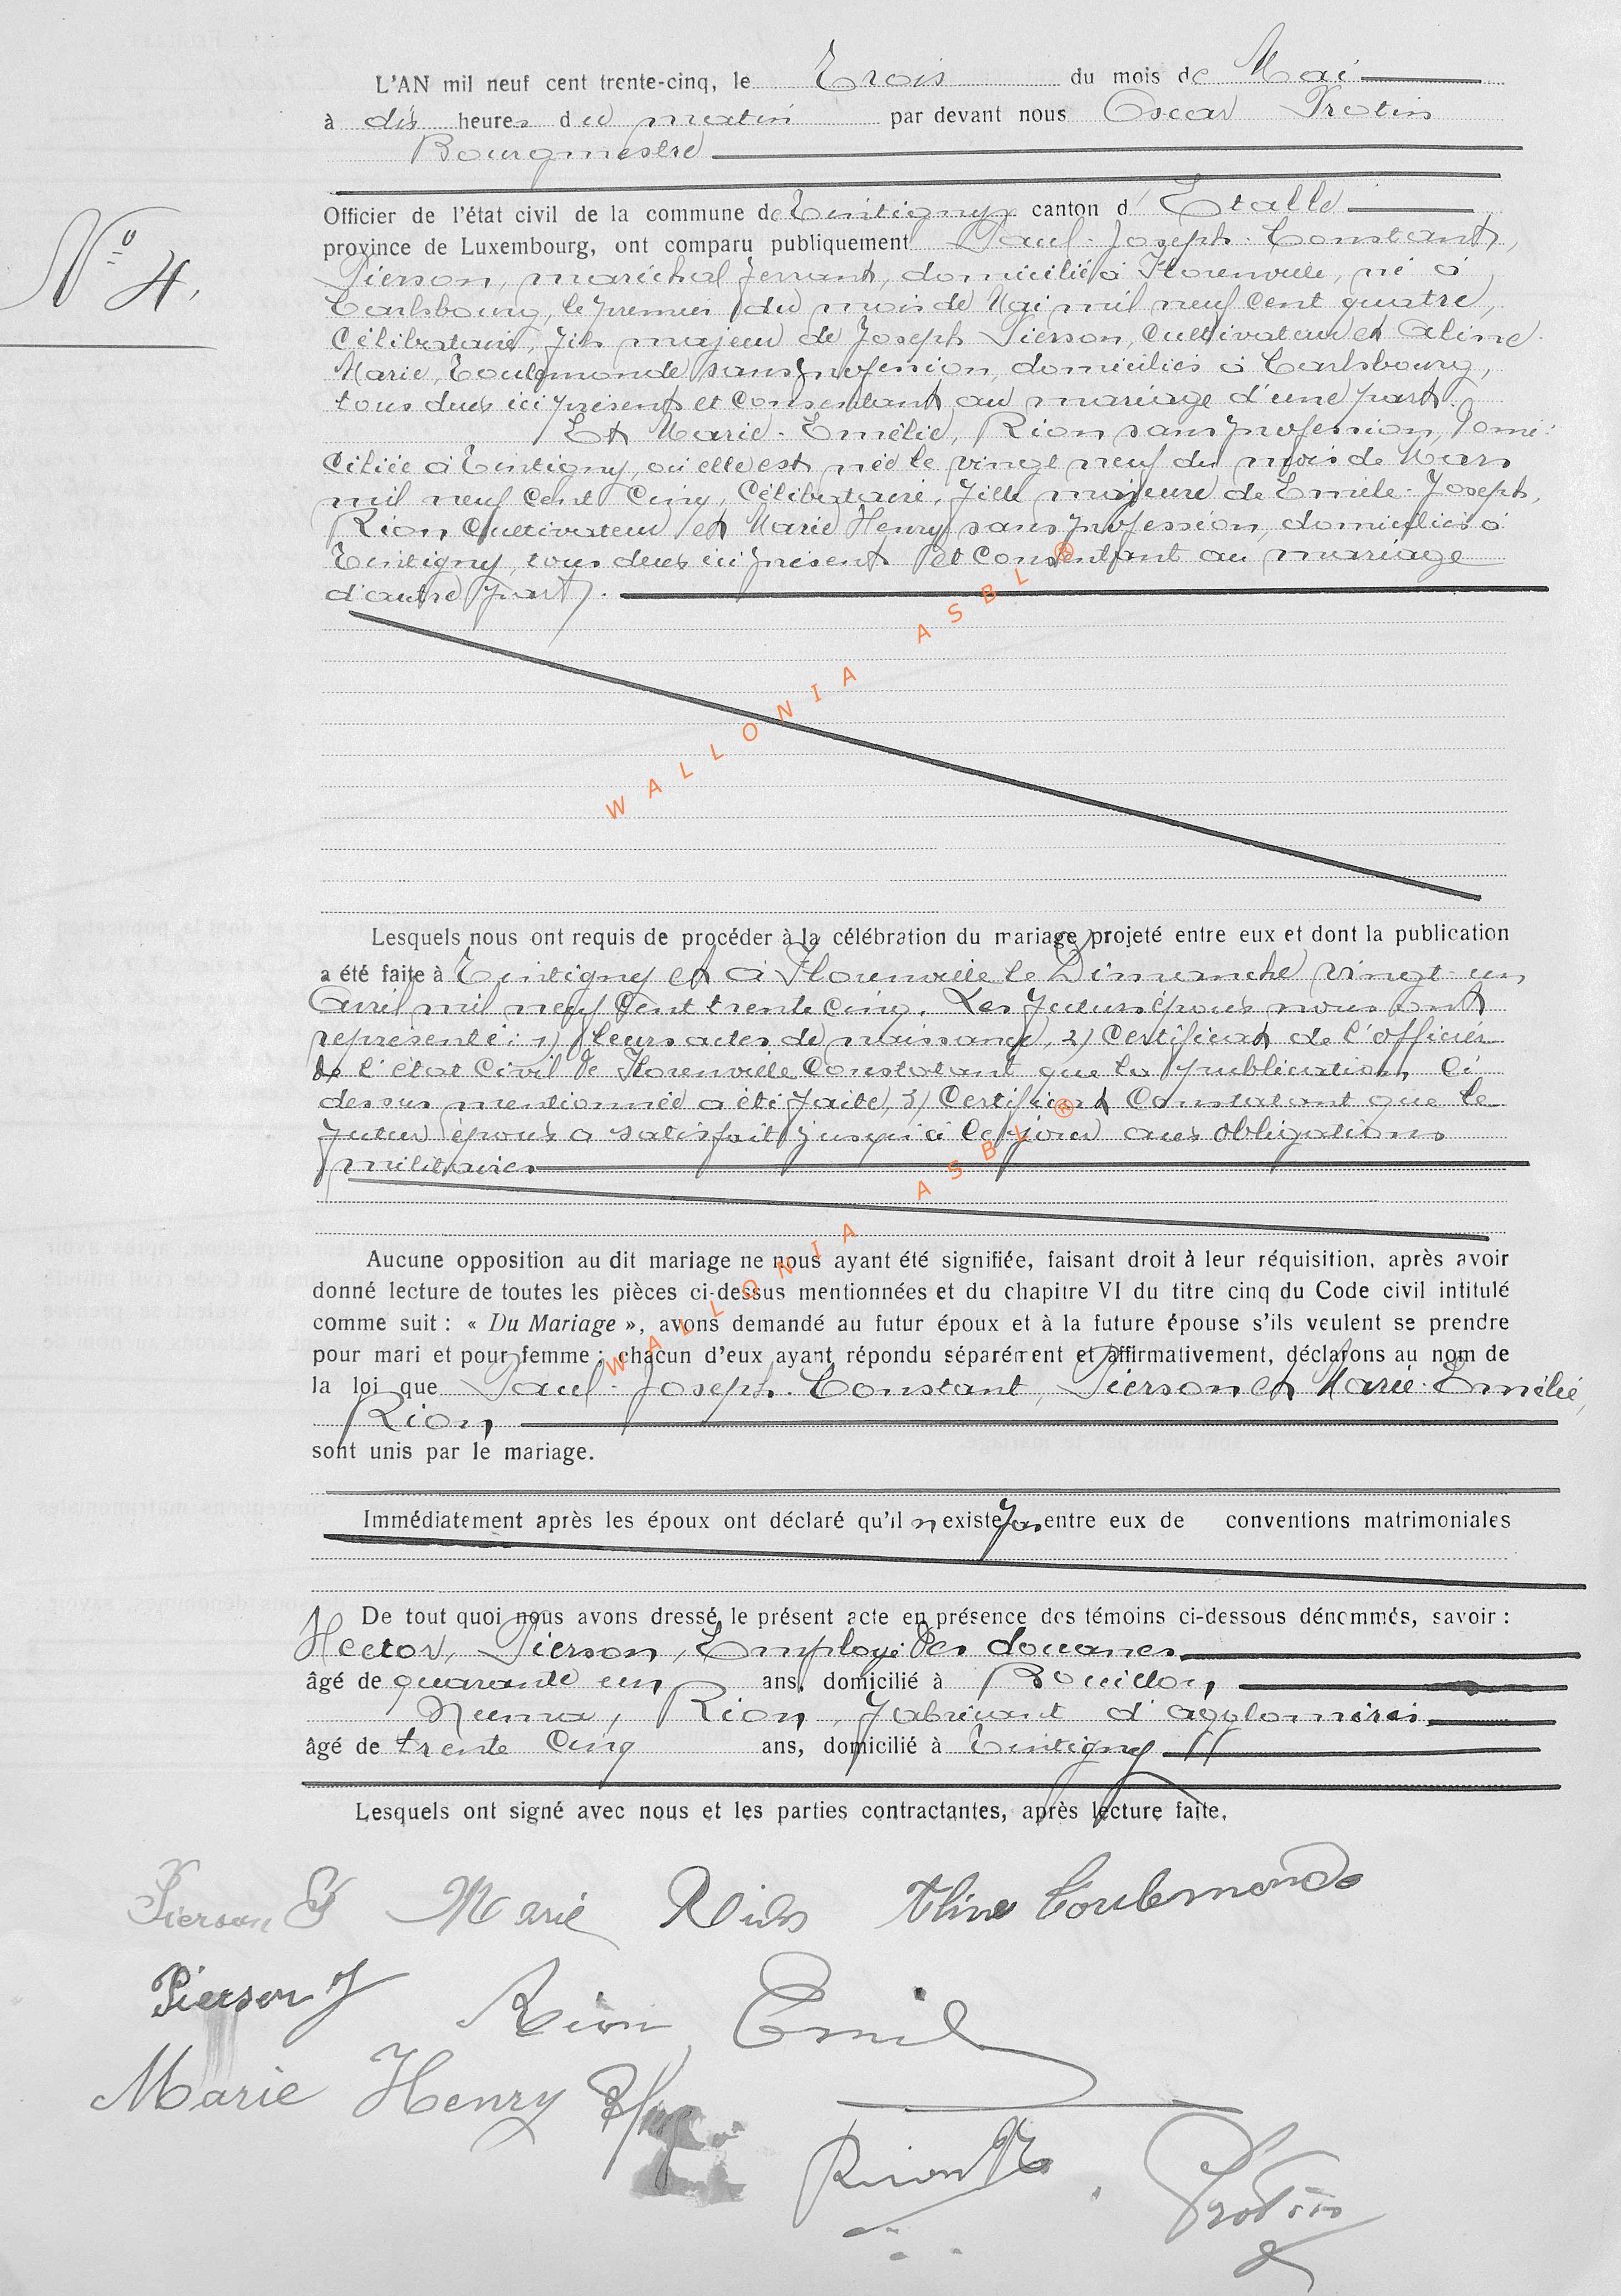 L'AN mil neuf cent trente-cinq, le Trois du mois de Mai
à dix heures du matin par devant nous Oscar Protin
Bourgmestre
Officier de l'état civil de la commune de Tintigny canton d' Etalle
N° 4.
province de Luxembourg, ont comparu publiquement Paul-Joseph-Constant,
Pierson, maréchal ferrant, domicilié à Florenville, né à
Carlsbourg, le premier du mois de Mai mil neuf cent quatre,
Célibataire, fils majeur de Joseph Pierson, Cultivateur et Aline
Marie, Toulemonde sans profession, domiciliés à Carlsbourg,
tous deux ici présents et Consentant au mariage d'une part.
Et Marie-Emélie, Rion sans profession, domi-
Ciliée à Tintigny, où elle est née le vingt neuf du mois de Mars
mil neuf Cent Cinq, Célibataire, fille majeure de Emile-Joseph,
Rion Cultivateur et Marie Henry sans profession, domiciliés à
Tintigny, tous deux ici présents et consentant au mariage
d'autre part.
Lesquels nous ont requis de procéder à la célébration du mariage projeté entre eux et dont la publication
a été faite à Tintigny et à Florenville le Dimanche vingt-un
Avril mil neuf Cent trente Cinq. Les futurs époux nous ont
représenté: 1) leurs actes de naissance, 2) Certificat de l'officier
de l'état Civil de Florenville Constatant que la publication Ci
dessus mentionnée a été faite, 3) Certificat Constatant que le
futur époux a satisfait jusqu'à ce jour aux obligations
militaires
Aucune opposition au dit mariage ne nous ayant été signifiée, faisant droit à leur réquisition, après avoir
donné lecture de toutes les pièces ci-dessus mentionnées et du chapitre VI du titre cinq du Code civil intitulé
comme suit : « Du Mariage », avons demandé au futur époux et à la future épouse s'ils veulent se prendre
pour mari et pour femme ; chacun d'eux ayant répondu séparément et affirmativement, déclarons au nom de
la loi que Paul-Joseph-Constant, Pierson et Marie-Emélie,
Rion,
sont unis par le mariage.
Immédiatement après les époux ont déclaré qu'il n'existe pas entre eux de conventions matrimoniales
De tout quoi nous avons dressé le présent acte en présence des témoins ci-dessous dénommés, savoir :
Hector, Pierson, Employé des douanes
âgé de quarante un ans, domicilié à Bouillon,
Numa, Rion, fabricant d'agglomérés
âgé de trente Cinq ans, domicilié à Tintigny
Lesquels ont signé avec nous et les parties contractantes, après lecture faite.
Pierson Marie Rion Aline Toulemonde
Pierson J Rion Emile
Marie Henry
Rion N Protin
WALLONIA ASBL ®
WALLONIA ASBL ®